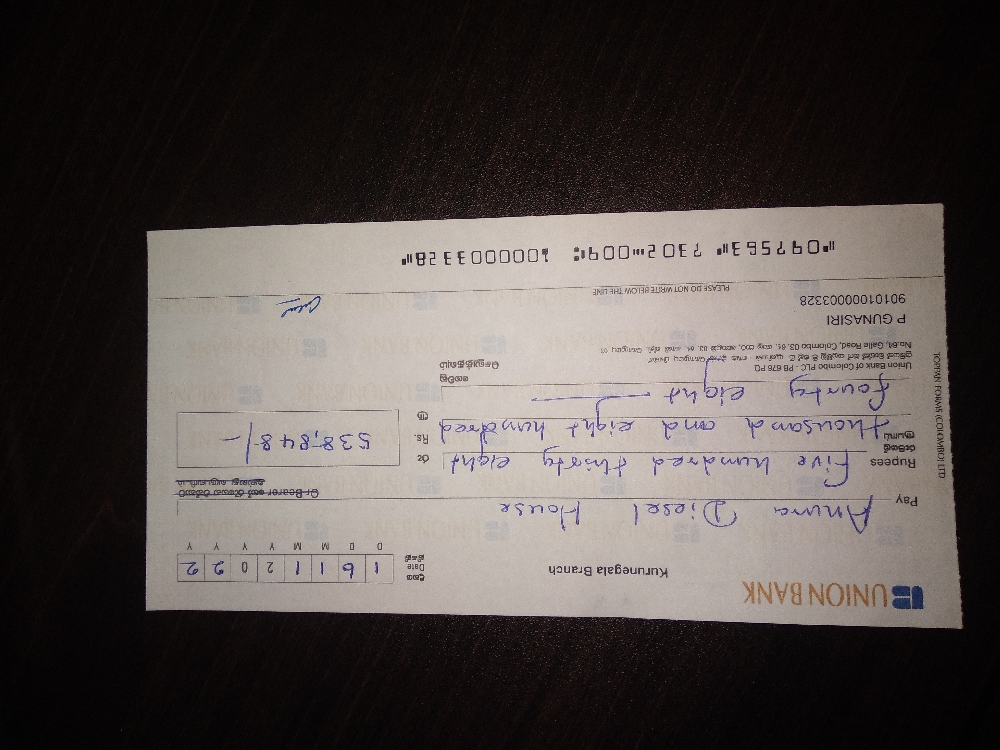 UNION BANK
Kurunegala Branch
Date
1 6 1 1 2 0 2 2
D D M M Y Y Y Y
Pay Anura Diesel House
Or Bearer
Rupees Five hundred thirty eight
thousand and eight hundred
fourty eight
Rs. 538,848/-
Union Bank of Colombo PLC - PB 676 PQ
No.64, Galle Road, Colombo 03.
P GUNASIRI
9010100000003328
PLEASE DO NOT WRITE BELOW THE LINE
⑈097563⑈ 7302⑉009⑆ 100003328⑈
TOPPAN FORMS (COLOMBO) LTD